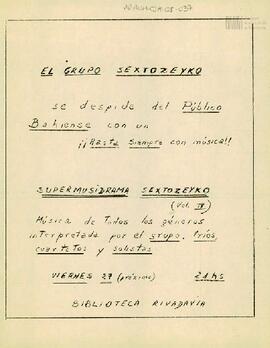 EL GRUPO SEXTOZEYKO
se despide del Público
Bahiense con un
¡¡Hasta Siempre con música!!
SUPERMUSIDRAMA SEXTOZEYKO
(Vol. IV)
Música de todos los géneros
interpretada por el grupo, tríos,
cuartetos y solistas
VIERNES 27 (próximo) 21 HS
BIBLIOTECA RIVADAVIA